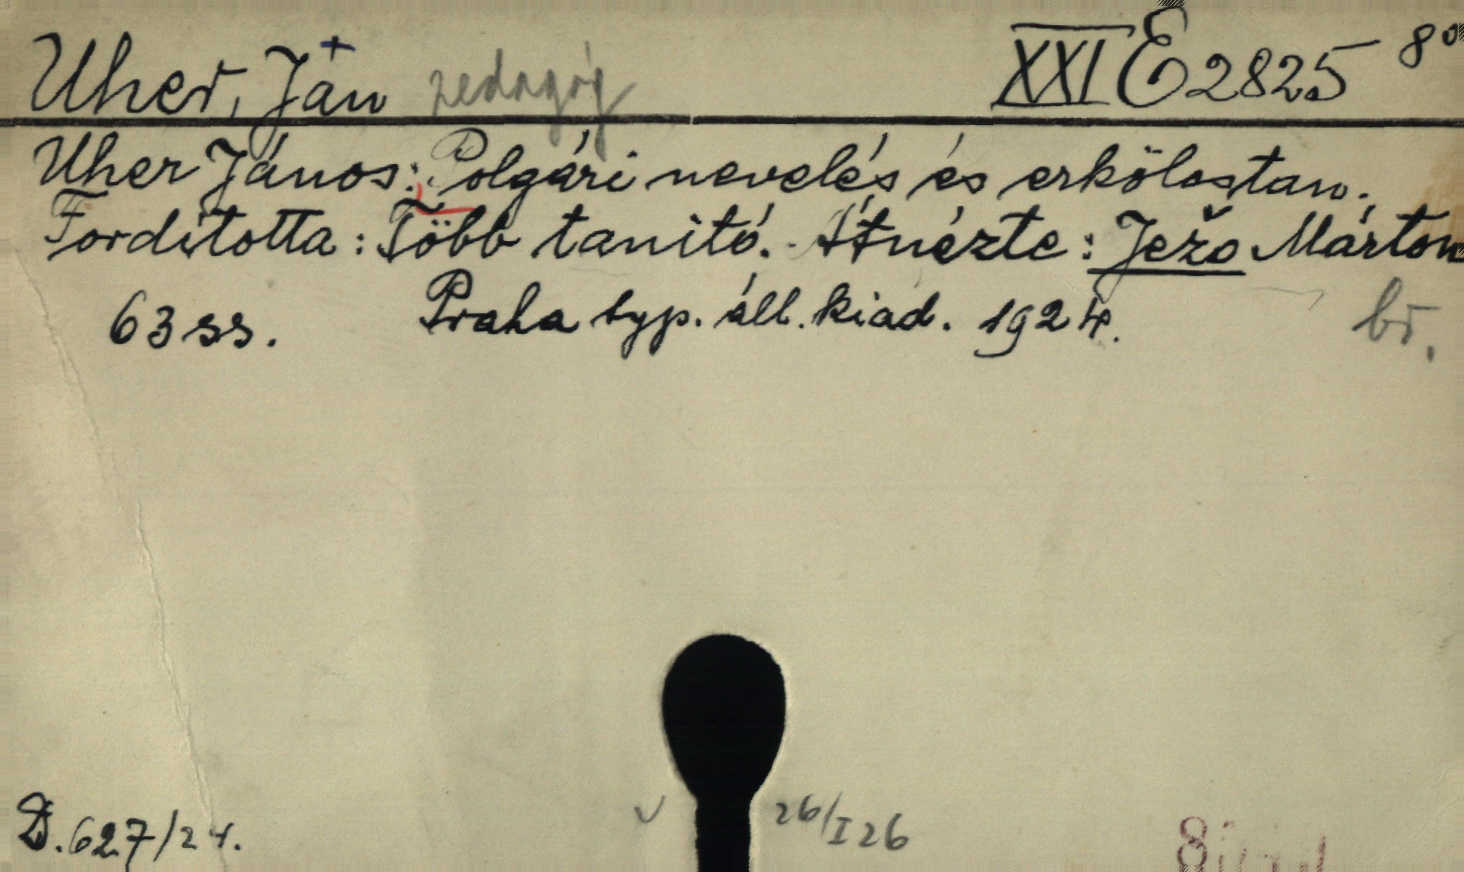 Uher, Ján pedagóg XXI E 2825 8°
Uher János: Polgári nevelés és erkölcstan.
Fordította: Több tanító. Átnézte: Ježo Márton
63 ss. Praha typ. áll. kiad. 1924. br.
D. 627/24. 26/I 26